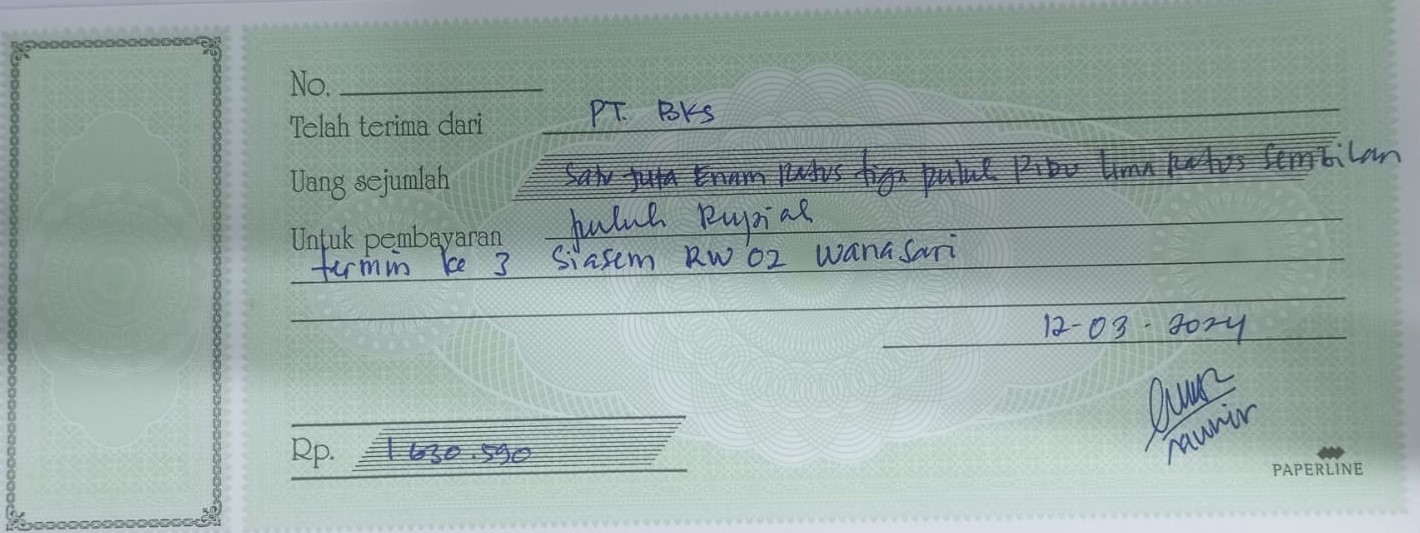 No.
Telah terima dari PT. BKS
Uang sejumlah Satu Juta Enam ratus tiga puluh Ribu lima ratus Sembilan
Untuk pembayaran puluh Rupiah
termin ke 3 Siasem RW 02 Wanasari
12-03-2024
Rp. 1 630.590
munir
PAPERLINE